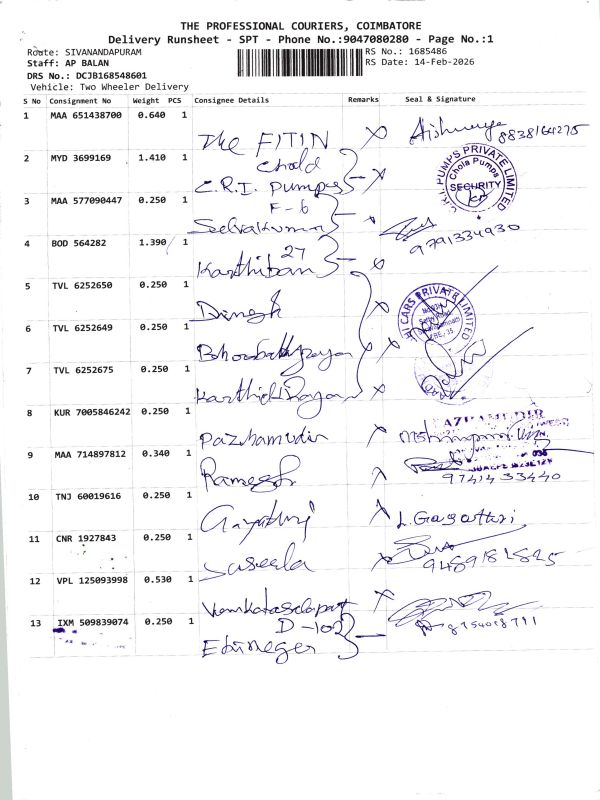 THE PROFESSIONAL COURIERS, COIMBATORE
Delivery Runsheet - SPT - Phone No.:9047080280 - Page No.:1
Route: SIVANANDAPURAM
RS No.: 1685486
Staff: AP BALAN
RS Date: 14-Feb-2026
DRS No.: DCJB168548601
Vehicle: Two Wheeler Delivery
S No Consignment No Weight PCS Consignee Details Remarks Seal & Signature
1 MAA 651438700 0.640 1
The FITIN
8838164275
2 MYD 3699169 1.410 1
C.R.I. Pumps
C.R.I. PUMPS PRIVATE LIMITED
Chola Pumps
SECURITY
3 MAA 577090447 0.250 1
F-6
Selvakumar
9791334930
4 BOD 564282 1.390 1
27
Karthiban
5 TVL 6252650 0.250 1
Dinesh
CARS PRIVATE LIMITED
6 TVL 6252649 0.250 1
7 TVL 6252675 0.250 1
Karthick Rajan
8 KUR 7005846242 0.250 1
Pazhamudir
9 MAA 714897812 0.340 1
Ramesh
9741433440
10 TNJ 60019616 0.250 1
Gayathri
11 CNR 1927843 0.250 1
Suseela
12 VPL 125093998 0.530 1
13 IXM 509839074 0.250 1
D-102
Ebineger